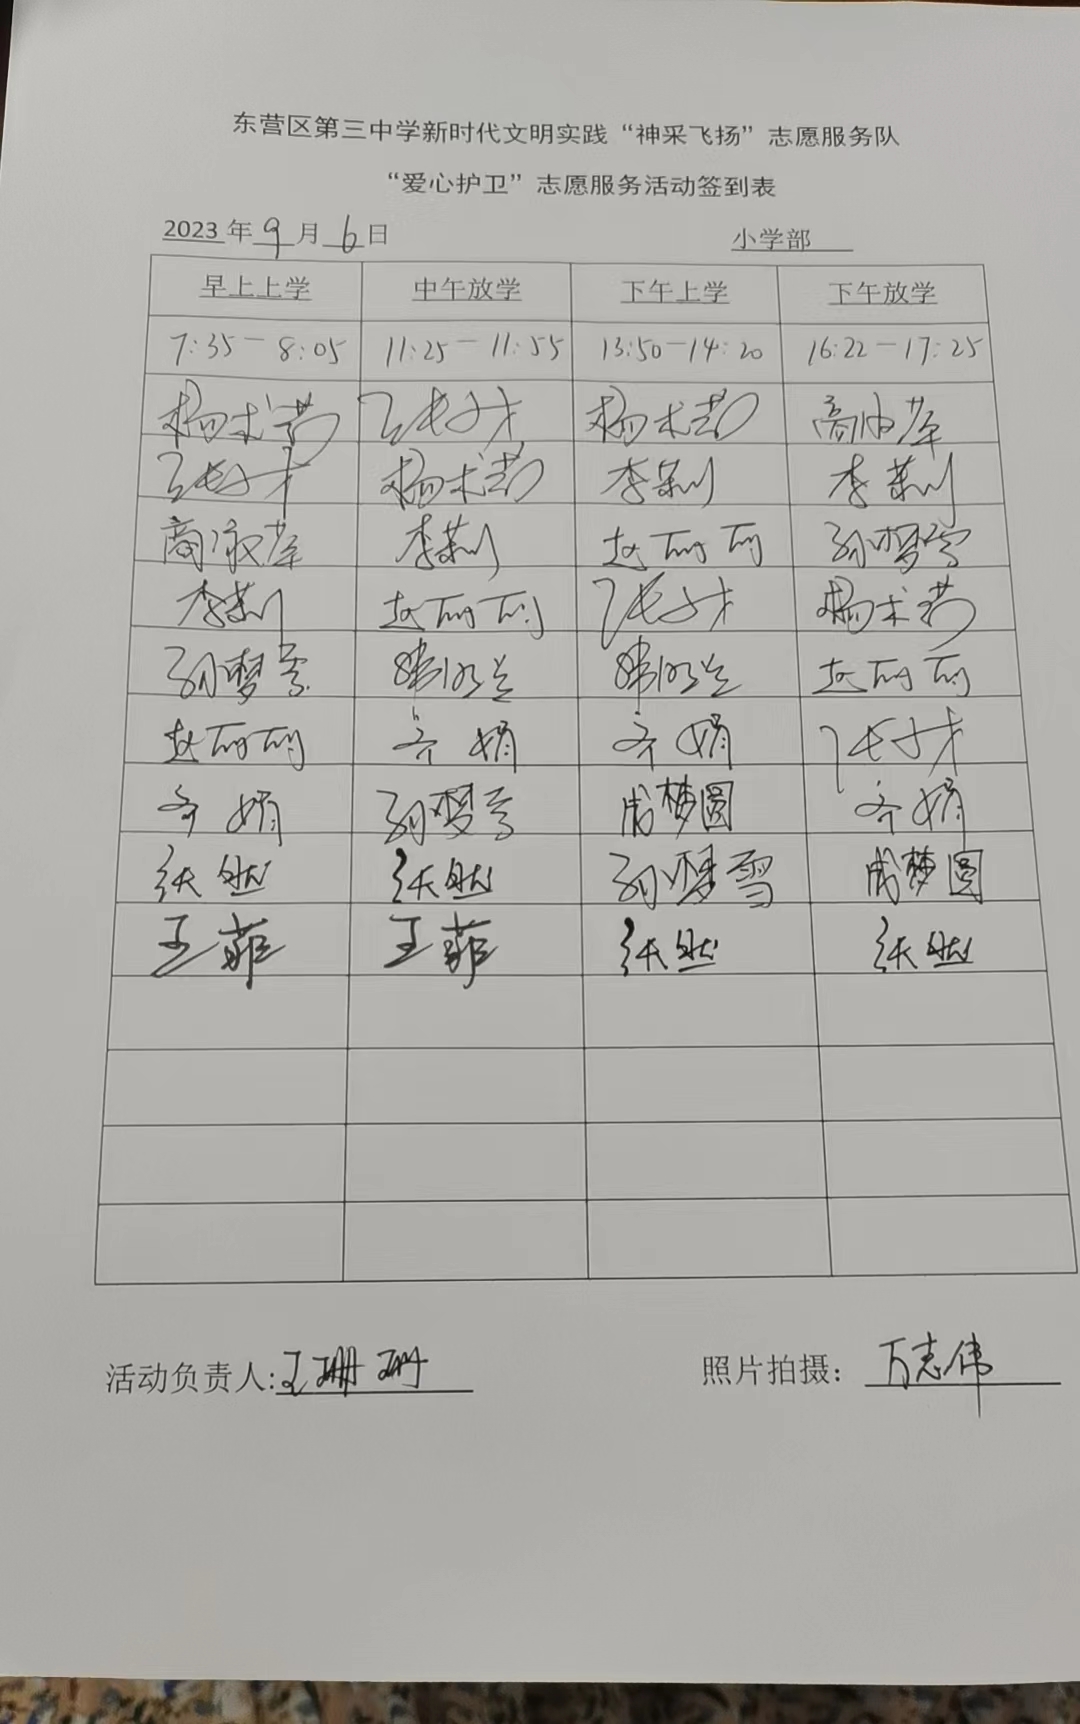 东营区第三中学新时代文明实践“神采飞扬”志愿服务队
“爱心护卫”志愿服务活动签到表
2023年9月6日 小学部
早上上学 中午放学 下午上学 下午放学
7:35-8:05 11:25-11:55 13:50-14:20 16:22-17:25
杨术芬 杨术芬
杨术芬 李荣 李荣
李荣 赵丽丽 孙梦雪
李荣 赵丽丽 杨术芬
孙梦雪 赵丽丽
赵丽丽 齐娟 齐娟
齐娟 孙梦雪 成梦圆 齐娟
张然 张然 孙梦雪 成梦圆
王菲 王菲 张然 张然
活动负责人:王珊珊 照片拍摄：万志伟